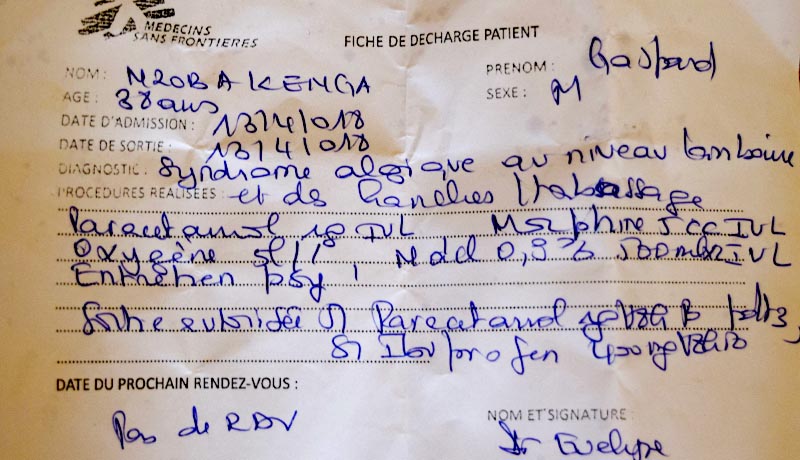 MEDECINS
SANS FRONTIERES
FICHE DE DECHARGE PATIENT
NOM : NZOBAKENGA
PRENOM : Gaspard
AGE : 38 ans
SEXE : M
DATE D'ADMISSION : 13/4/018
DATE DE SORTIE : 13/4/018
DIAGNOSTIC : Syndrome algique au niveau lombaire
PROCEDURES REALISEES : et des hanches / tabassage
Paracetamol 1g IVL Morphine 5cc IVL
Oxygène 5l/1' , Nacl 0,9% 500ml IVL
Entretien psy
Sortie autorisée Paracetamol 1g
Ibuprofen 400mg
DATE DU PROCHAIN RENDEZ-VOUS :
Pas de RDV
NOM ET SIGNATURE :
Dr Evelyne